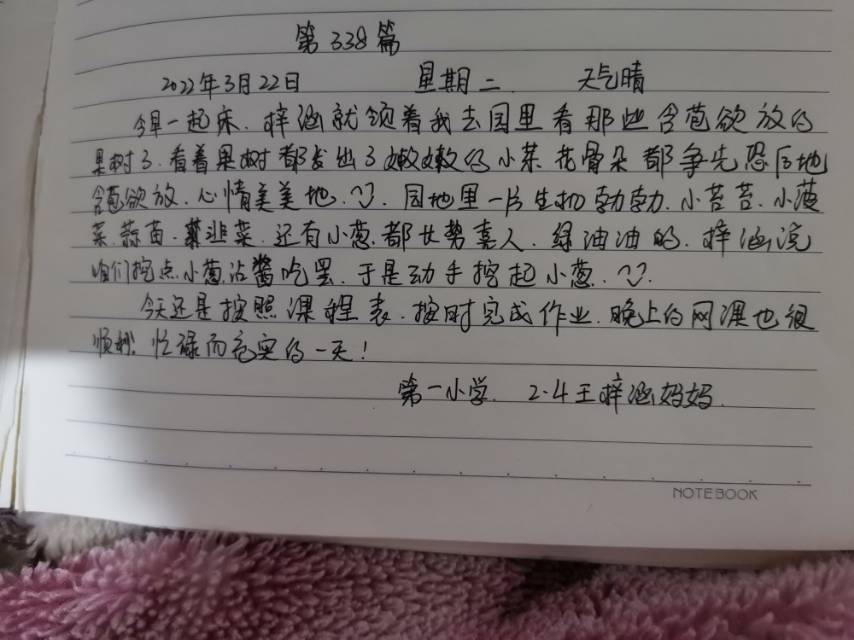 第338篇
2022年3月22日 星期二. 天气晴
今早一起床.梓涵就领着我去园里看那些含苞欲放的
果树了.看着果树都发出了嫩嫩的小芽.花骨朵都争先恐后地
含苞欲放.心情美美地.园地里一片生机勃勃.小苔苔.小菠
菜.蒜苗.韭菜.还有小葱.都长势喜人.绿油油的.梓涵说
咱们挖点小葱沾酱吃罢.于是动手挖起小葱.
今天还是按照课程表.按时完成作业.晚上的网课也很
顺利.忙碌而充实的一天!
第一小学. 2.4王梓涵妈妈.
NOTEBOOK